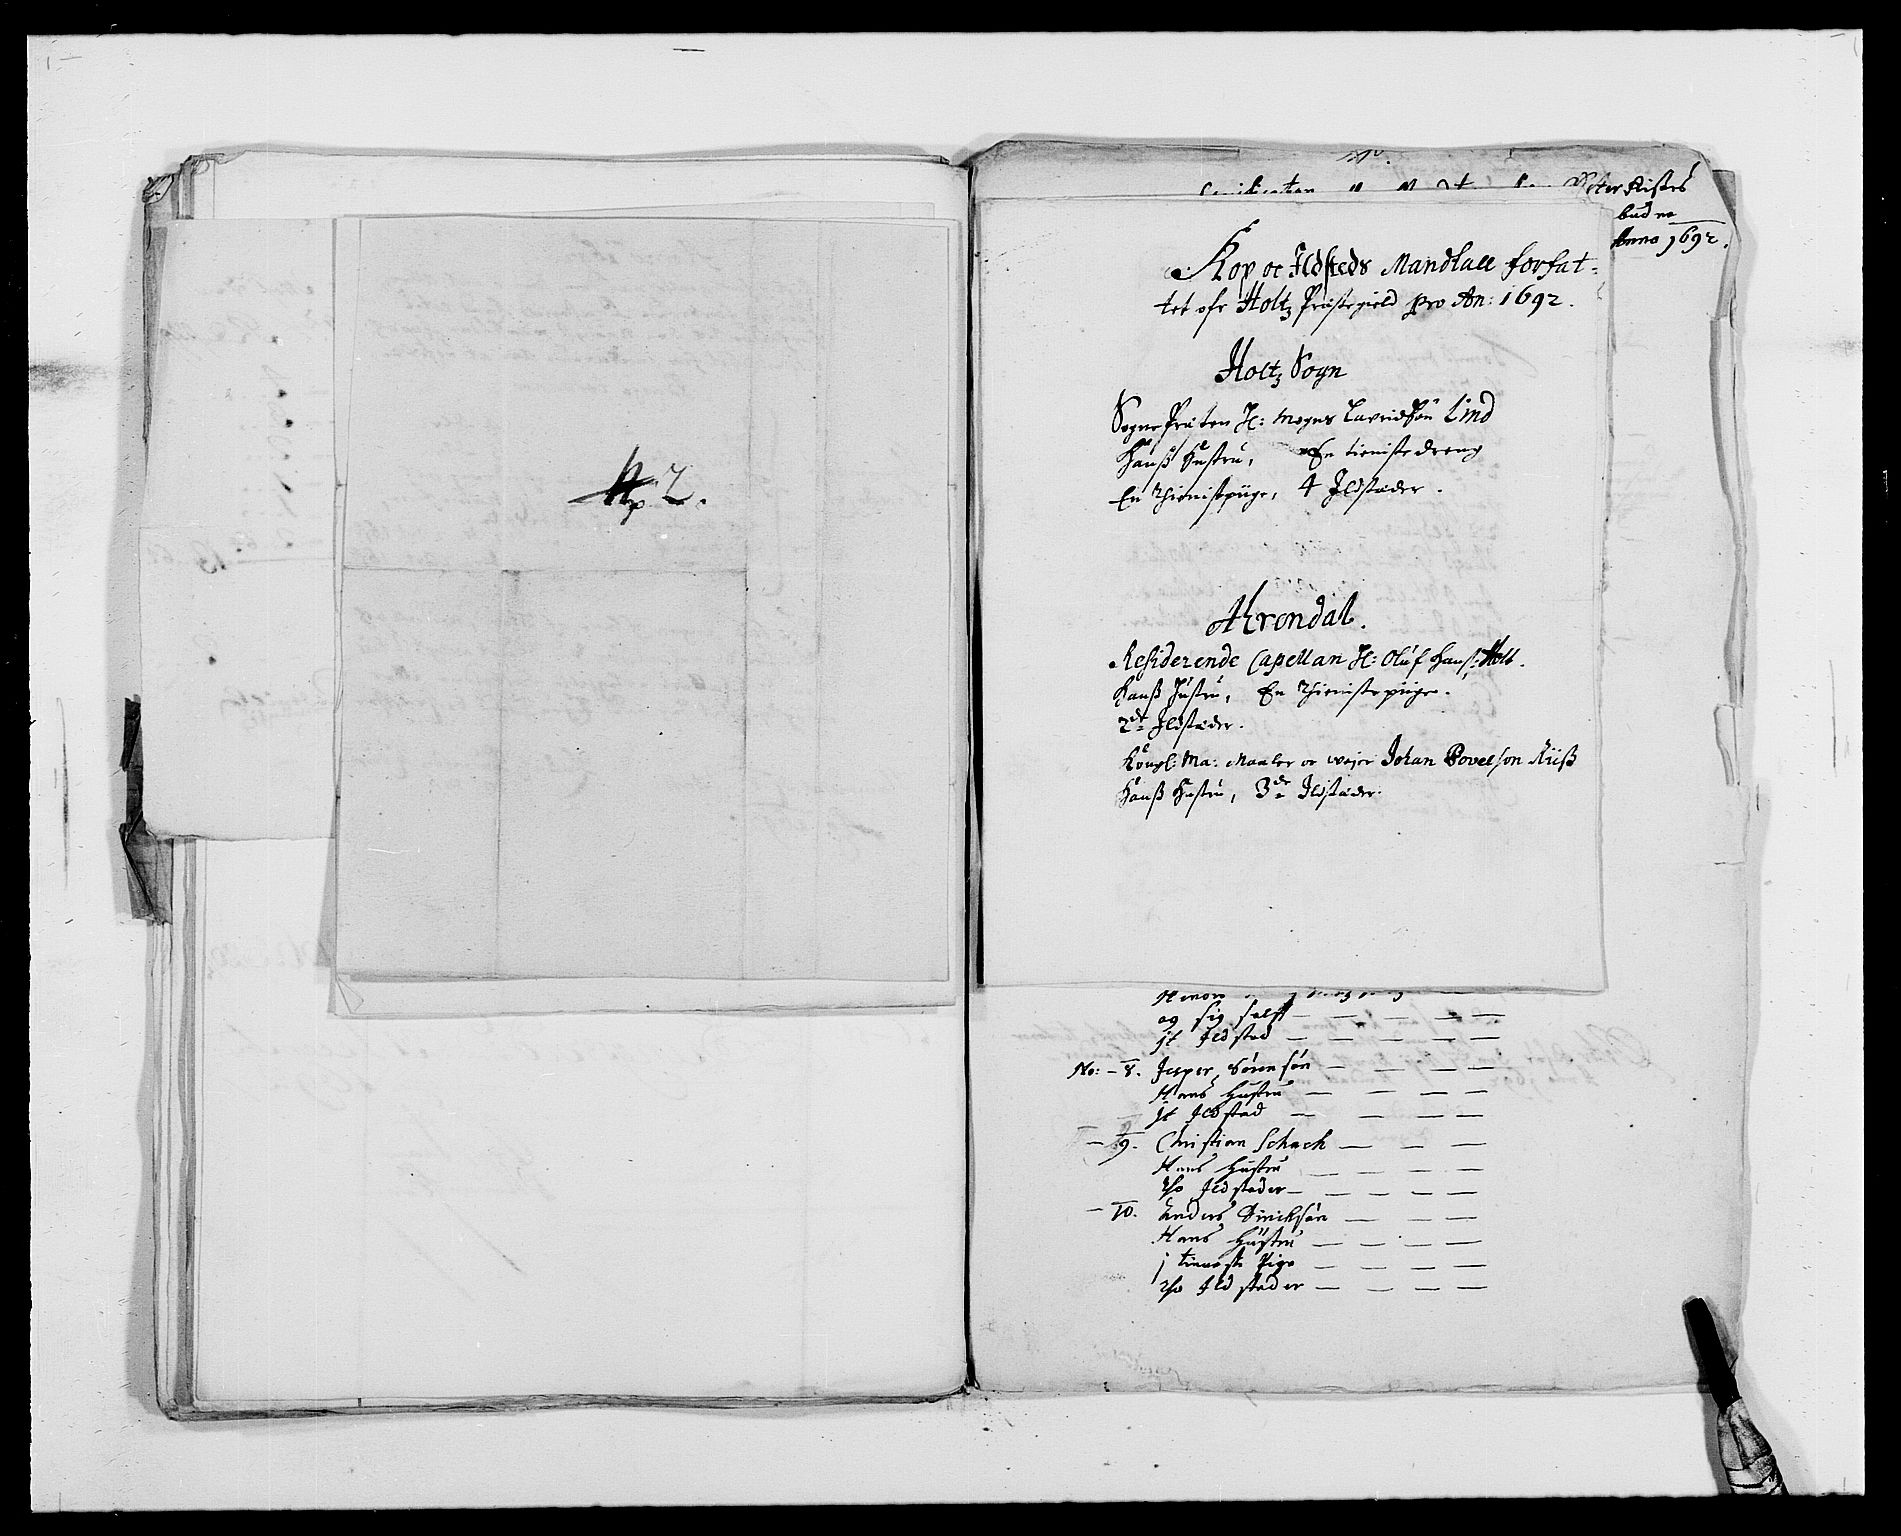 2.
Peter Nisses
budne
Anno 1692.
Kop oc Ildsteds Mandtall forfat-
tet ofr Holtz Præstegield pro An: 1692.
Holtz Sogn
Sogne Præsten H: Mogns Lauridsøn Lind
Hanß Hustru, En tieniste dreng
En Thienistpiige, 4 Ildstæder.
Arendal.
Residerende Capellan H: Oluf Hans: Holt.
Hanß Hustru, En Thieniste piige.
2de Ildstæder.
Kongl: Ma: Maaler oc weyer Johan Povelson Riiß
Hanß Hustru, 3de Ildstæder.
og sig self
jt Ildsted
No: - 8. Jesper Sørensøn
Hans Hustru
jt Ildsted
- 9. Christian Schach
Hans Hustru
tho Ildsteder
- 10. Anders Diricksøn
Hans Hustru
j tieneste Pige
tho Ildsteder